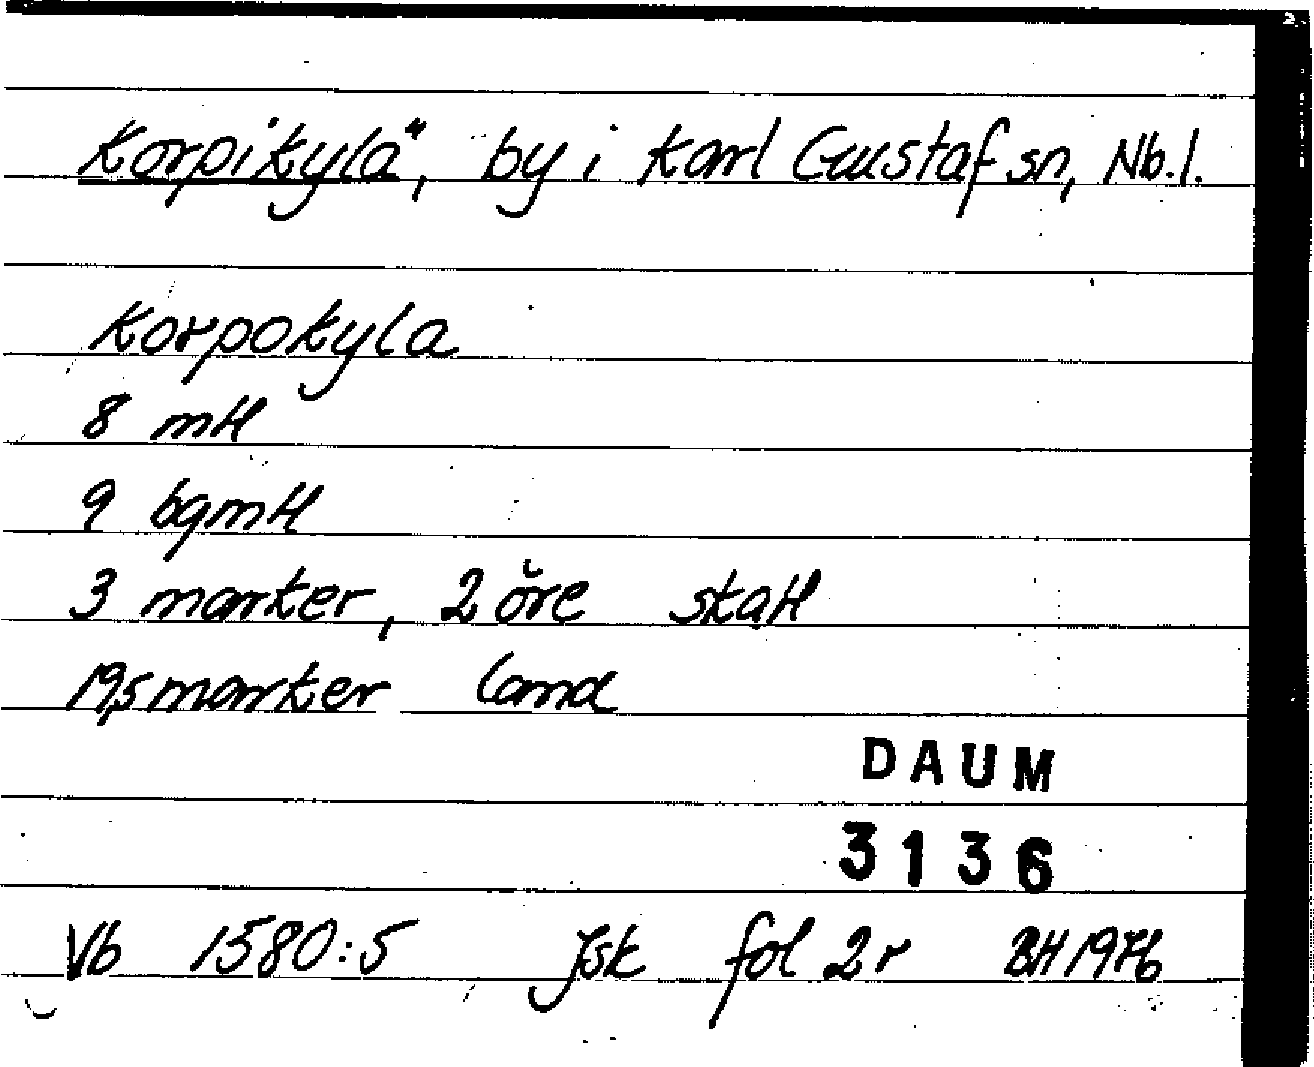 Korpikylä, by i Karl Gustaf sn, Nb.l.
Korpokyla
8 mtl
9 bgmtl
3 marker, 2 öre skatt
19,5 marker land
DAUM
3136
Vb 1580:5 Jsk fol 2r BH 1976